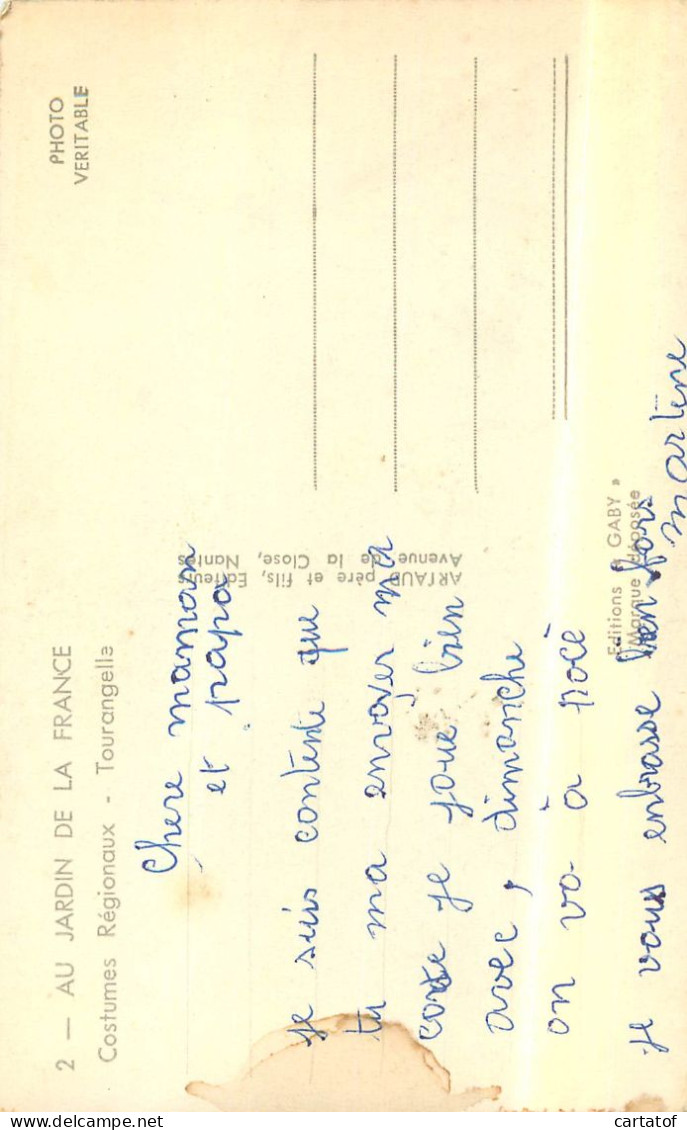 2 — AU JARDIN DE LA FRANCE
Costumes Régionaux - Tourangelle
PHOTO
VERITABLE
Chere maman
et papa
je suis contente que
tu ma envoyer ma
corde je joue bien
avec, dimanche
on va à pocé
je vous enbrasse bien fors
martine
ARTAUD père et fils, Editeurs
Avenue de la Close, Nantes
Editions « GABY »
Marque déposée
cartatof